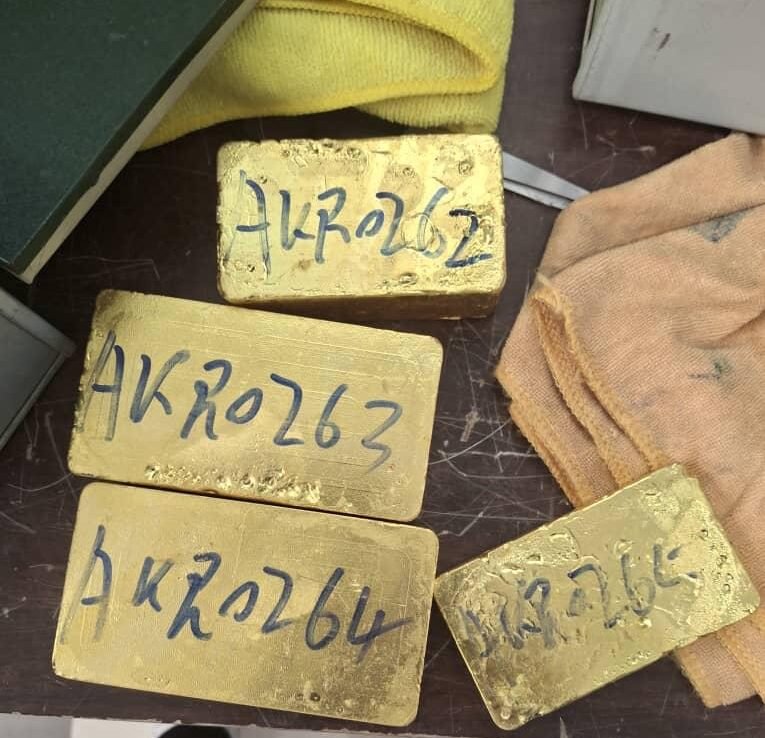 AKR0262
AKR0263
AKR0264
AKR0265